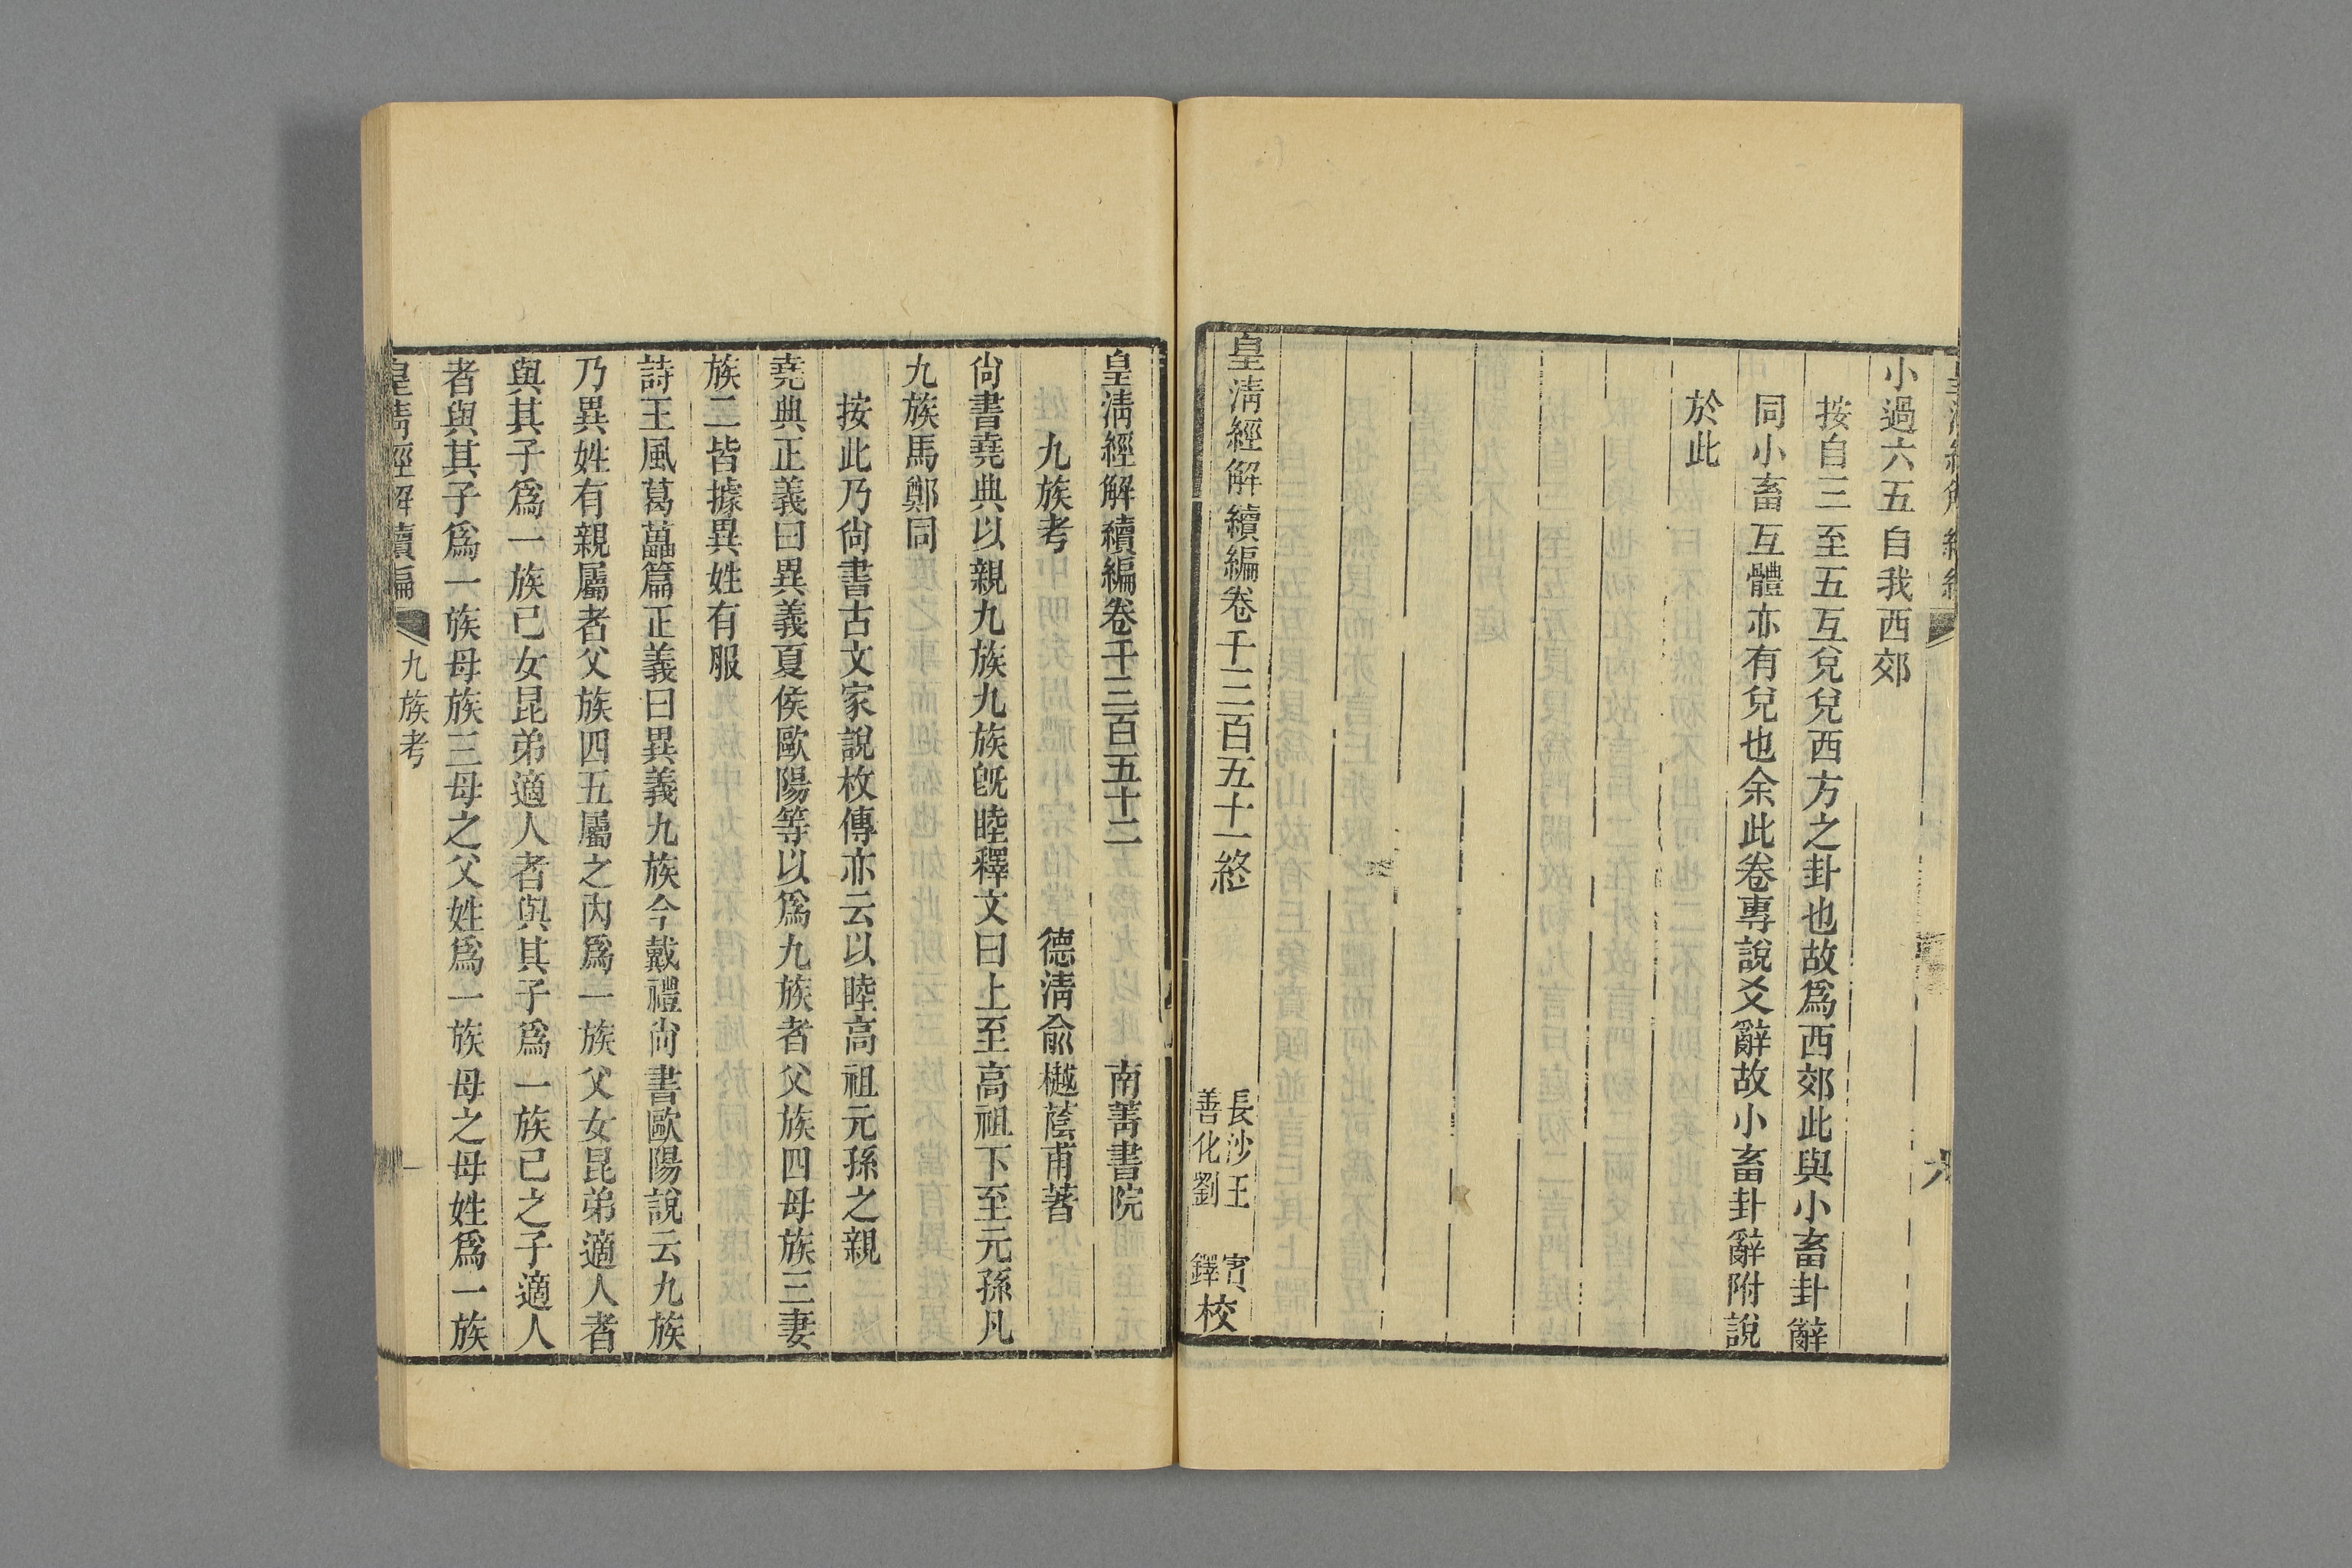 小過六五自我西郊
按自三至五互兌兌西方之卦也故爲西郊此與小畜卦辭
同小畜互體亦有兌也余此卷專說爻辭故小畜卦辭附說
於此
皇淸經解續編卷千三百五十一終
長沙王
善化劉
鐸校
皇淸經解續編卷千三百五十二
南菁書院
九族考
德淸俞樾蔭甫著
尙書堯典以親九族九族旣睦釋文曰上至高祖下至元孫凡
九族馬鄭同
按此乃尙書古文家說枚傳亦云以睦高祖元孫之親
堯典正義曰異義夏侯歐陽等以爲九族者父族四母族三妻
族二皆據異姓有服
詩王風葛藟篇正義曰異義九族今戴禮尙書歐陽說云九族
乃異姓有親屬者父族四五屬之內爲一族父女昆弟適人者
與其子爲一族已女昆弟適人者與其子爲一族已之子適人
者與其子爲一族母族三母之父姓爲一族母之母姓爲一族
皇淸經解續編
九族考
一